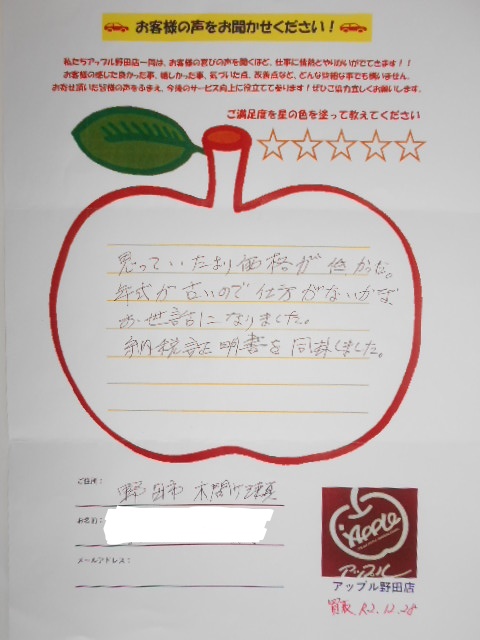 お客様の声をお聞かせください！
私たちアップル野田店一同は、お客様の喜びの声を聞くほど、仕事に情熱とやりがいがでてきます！！
お客様の感じた良かった事、嬉しかった事、気づいた点、改善点など、どんな些細な事でも構いません。
お寄せ頂いた皆様の声をふまえ、今後のサービス向上に役立てて参ります！ぜひご協力宜しくお願いします。
ご満足度を星の色を塗って教えてください
思っていたより価格が低かった。
年式が古いので仕方がないかな、
お世話になりました。
納税証明書を同封しました。
ご住所：
野田市 木間ケ瀬
お名前：
メールアドレス：
APPLE
アップル
アップル野田店
買取 R2.12.28